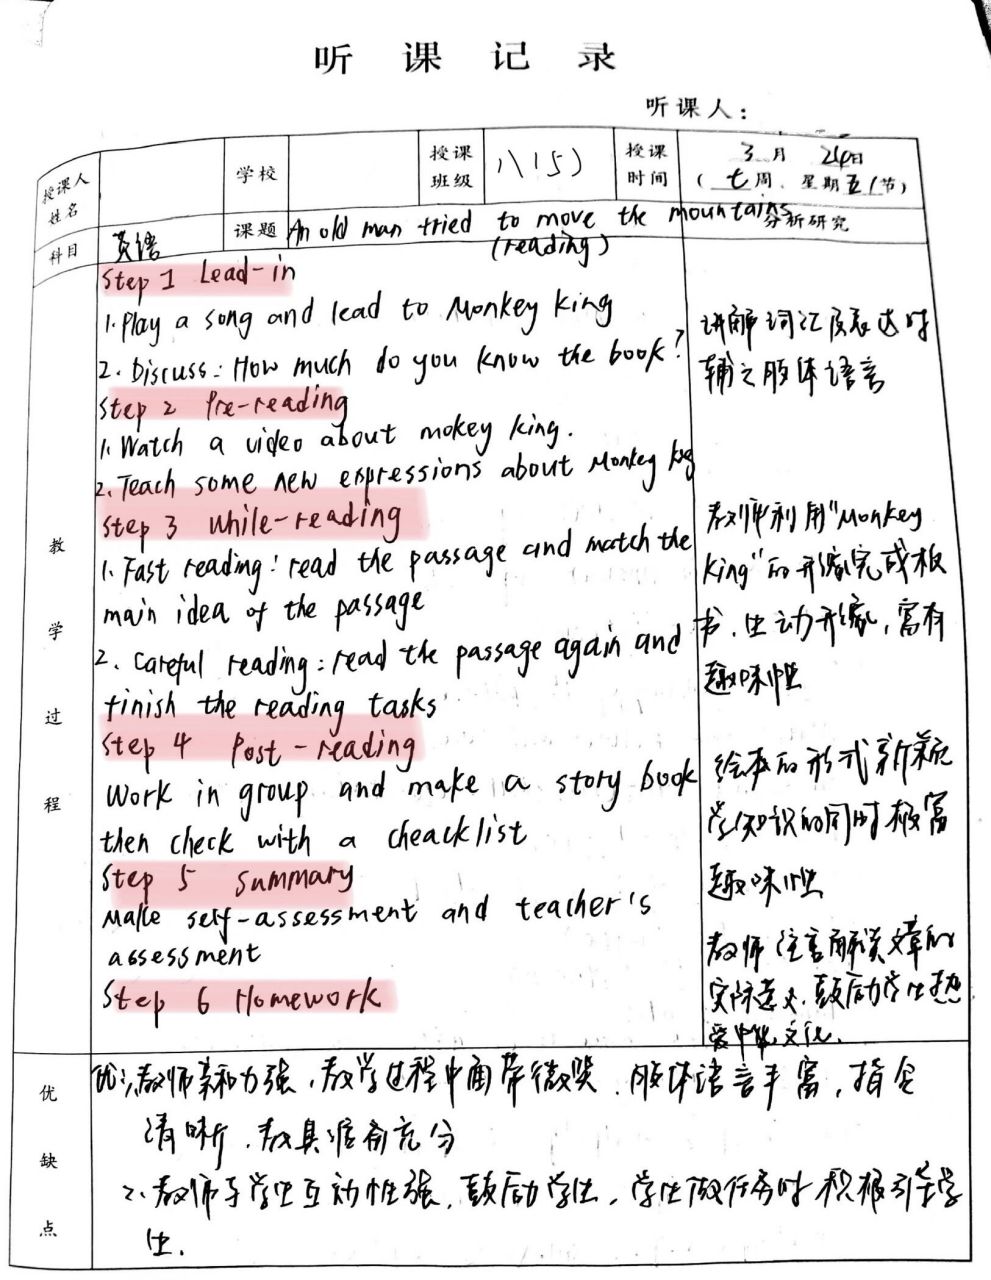 听课记录
听课人：
授课人姓名 学校 授课班级 八（5） 授课时间 3月24日（七周、星期五1节）
科目 英语 课题 An old man tried to move the mountains 分析研究
(reading)
Step 1 Lead-in
1. Play a song and lead to Monkey King
2. Discuss: How much do you know the book?
Step 2 Pre-reading
1. Watch a video about mokey king.
2. Teach some new expressions about Monkey King
Step 3 while-reading
1. Fast reading: read the passage and match the
main idea of the passage
2. Careful reading: read the passage again and
finish the reading tasks
Step 4 Post-reading
Work in group and make a story book
then check with a cheacklist
Step 5 Summary
Make self-assessment and teacher's
assessment
Step 6 Homework
教学过程
讲解词汇及表达时
辅之肢体语言
教师利用"Monkey
King"的形象完成板
书，生动形象，富有
趣味性
绘本的形式新颖
学知识的同时极富
趣味性
教师注意解读文章的
实际意义，鼓励学生热
爱中华文化.
优缺点
优：教师亲和力强，教学过程中面带微笑、肢体语言丰富，指令
清晰，教具准备充分
2. 教师与学生互动性强，鼓励学生，学生做任务时积极引导学
生.